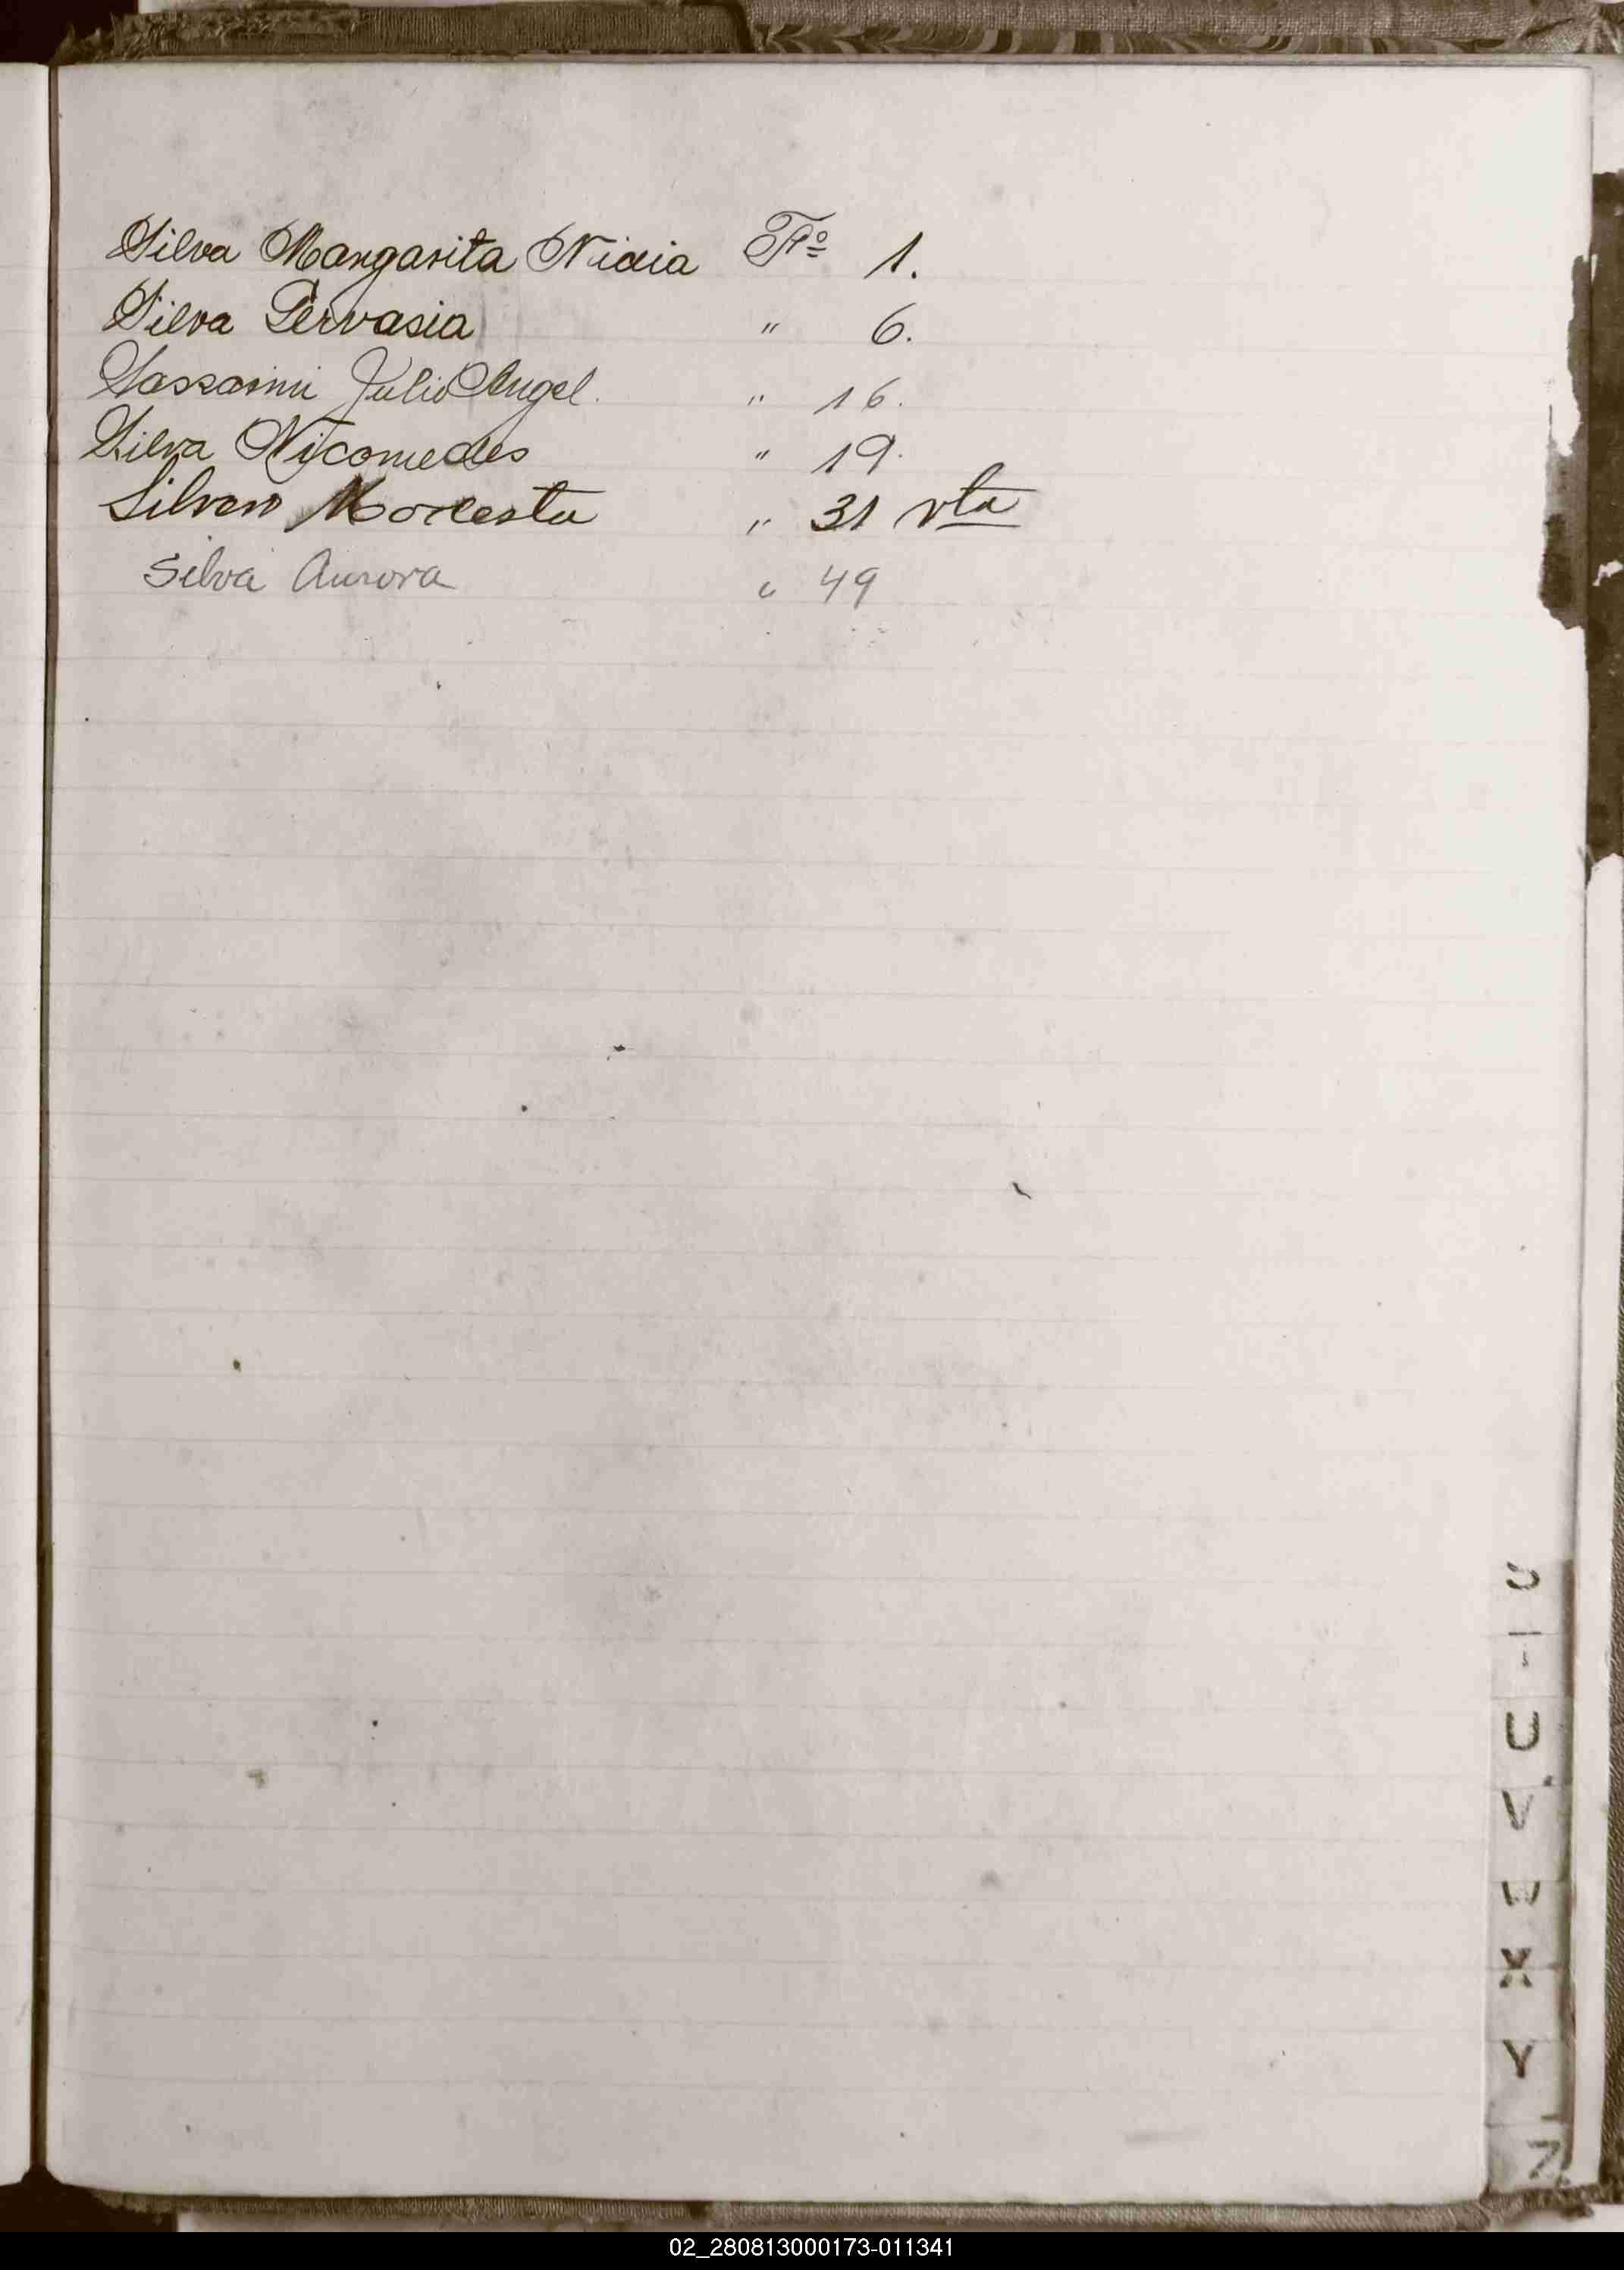 Silva Margarita Nidia Fº 1.
Silva Gervasia " 6.
Sassarini Julio Angel. " 16.
Silva Nicomedes " 19.
Silvera Modesta " 31 vta
Silva Aurora " 49
S
T
U
V
W
X
Y
Z
02_280813000173-011341